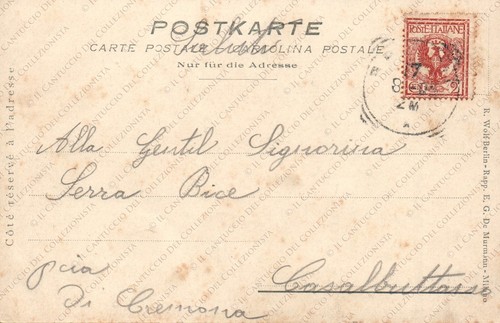 POSTKARTE
CARTE POSTALE CARTOLINA POSTALE
Nur für die Adresse
POSTE ITALIANE
Côté réservé à l'adresse
Alla Gentil Signorina
Serra Bice
Casalbuttano
pcia
Di Cremona
R. Wolf Berlin - Rapp. E. G. De Murmann - Milano
© IL CANTUCCIO DEL COLLEZIONISTA